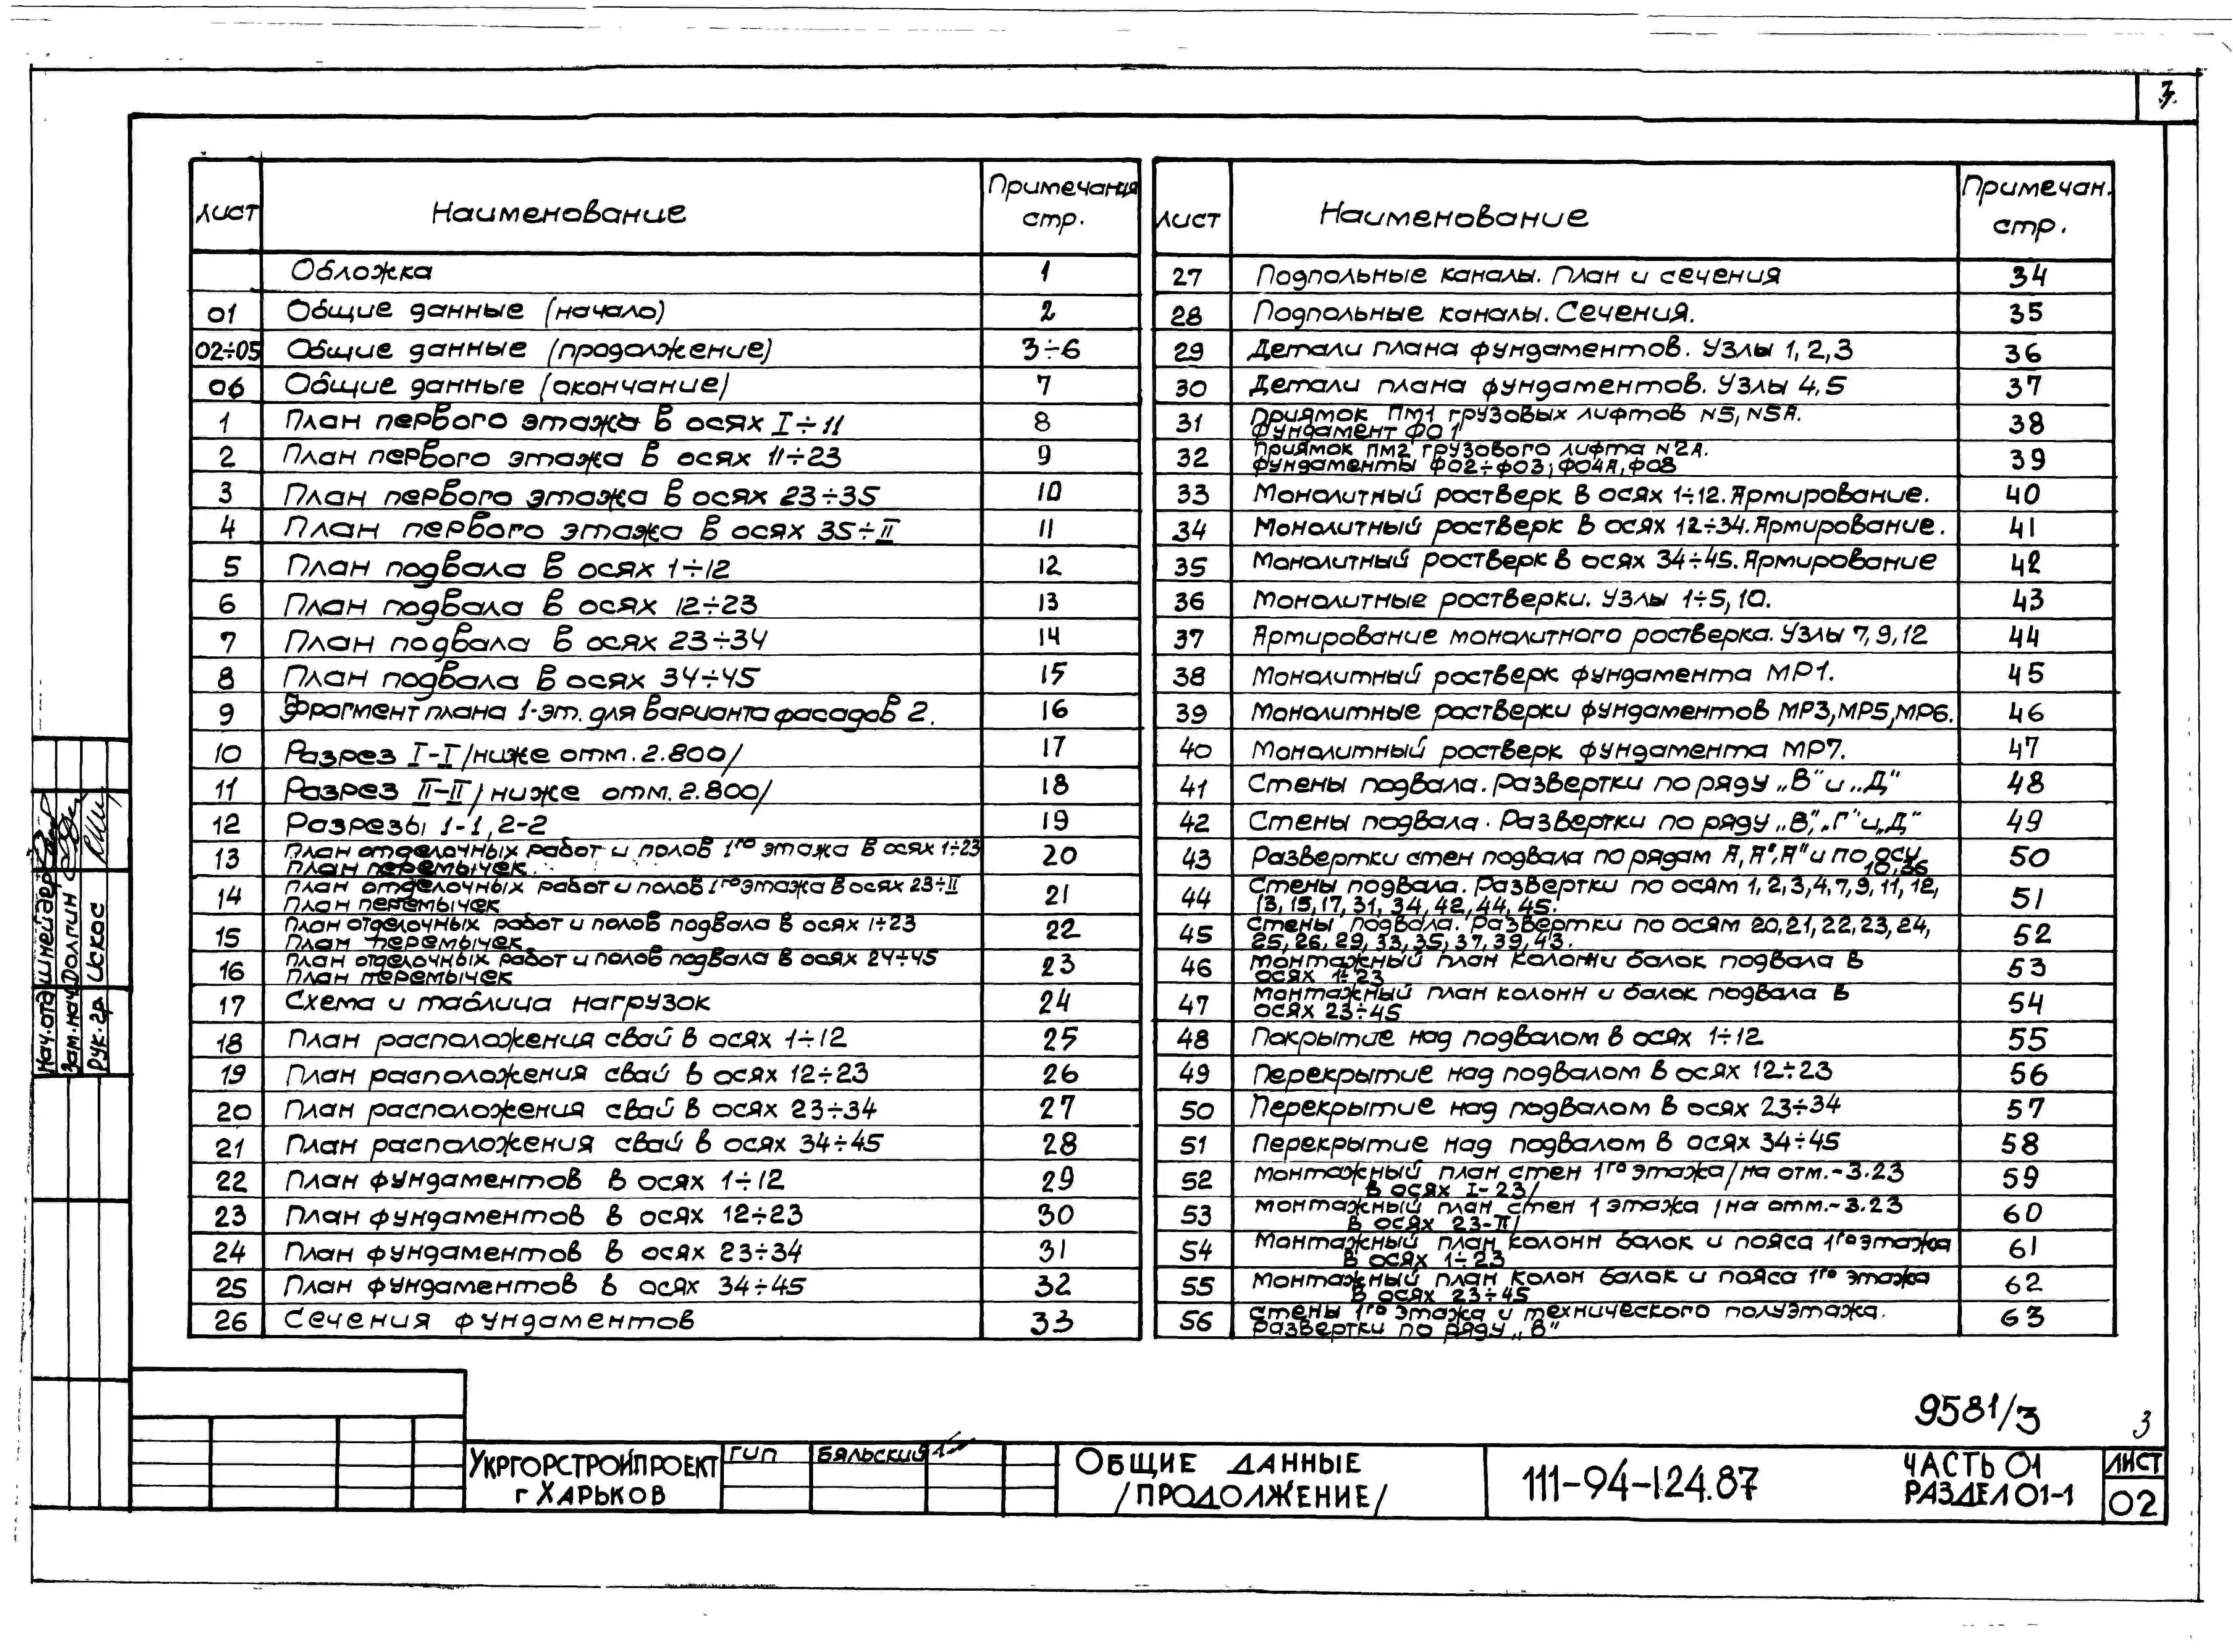 3
Лист Наименование Примечания стр.
Обложка 1
01 Общие данные (начало) 2
02÷05 Общие данные (продолжение) 3÷6
06 Общие данные (окончание) 7
1 План первого этажа в осях I÷11 8
2 План первого этажа в осях 11÷23 9
3 План первого этажа в осях 23÷35 10
4 План первого этажа в осях 35÷II 11
5 План подвала в осях 1÷12 12
6 План подвала в осях 12÷23 13
7 План подвала в осях 23÷34 14
8 План подвала в осях 34÷45 15
9 Фрагмент плана 1-эт. для варианта фасадов 2. 16
10 Разрез I-I /ниже отм. 2.800/ 17
11 Разрез II-II /ниже отм. 2.800/ 18
12 Разрезы 1-1, 2-2 19
13 План отделочных работ и полов 1го этажа в осях 1÷23 20
План перемычек.
14 План отделочных работ и полов 1го этажа в осях 23÷II 21
План перемычек
15 План отделочных работ и полов подвала в осях 1÷23 22
План перемычек
16 План отделочных работ и полов подвала в осях 24÷45 23
План перемычек
17 Схема и таблица нагрузок 24
18 План расположения свай в осях 1÷12 25
19 План расположения свай в осях 12÷23 26
20 План расположения свай в осях 23÷34 27
21 План расположения свай в осях 34÷45 28
22 План фундаментов в осях 1÷12 29
23 План фундаментов в осях 12÷23 30
24 План фундаментов в осях 23÷34 31
25 План фундаментов в осях 34÷45 32
26 Сечения фундаментов 33
Лист Наименование Примечан. стр.
27 Подпольные каналы. План и сечения 34
28 Подпольные каналы. Сечения. 35
29 Детали плана фундаментов. Узлы 1, 2, 3 36
30 Детали плана фундаментов. Узлы 4, 5 37
31 Приямок ПМ1 грузовых лифтов N5, N5А. 38
Фундамент ФО1
32 Приямок ПМ2 грузового лифта N2А. 39
Фундаменты ФО2÷ФО3; ФО4А, ФО8
33 Монолитный ростверк в осях 1÷12. Армирование. 40
34 Монолитный ростверк в осях 12÷34. Армирование. 41
35 Монолитный ростверк в осях 34÷45. Армирование 42
36 Монолитные ростверки. Узлы 1÷5, 10. 43
37 Армирование монолитного ростверка. Узлы 7, 9, 12 44
38 Монолитный ростверк фундамента МР1. 45
39 Монолитные ростверки фундаментов МР3, МР5, МР6. 46
40 Монолитный ростверк фундамента МР7. 47
41 Стены подвала. Развертки по ряду „В" и „Д" 48
42 Стены подвала. Развертки по ряду „В", „Г" и „Д" 49
43 Развертки стен подвала по рядам А, А', А" и по оси 50
10, 36
44 Стены подвала. Развертки по осям 1, 2, 3, 4, 7, 9, 11, 12, 51
13, 15, 17, 31, 34, 42, 44, 45.
45 Стены подвала. Развертки по осям 20, 21, 22, 23, 24, 52
25, 26, 29, 33, 35, 37, 39, 43.
46 Монтажный план колонн и балок подвала в 53
осях 1÷23
47 Монтажный план колонн и балок подвала в 54
осях 23÷45
48 Покрытие над подвалом в осях 1÷12 55
49 Перекрытие над подвалом в осях 12÷23 56
50 Перекрытие над подвалом в осях 23÷34 57
51 Перекрытие над подвалом в осях 34÷45 58
52 Монтажный план стен 1го этажа /на отм. -3.23 59
в осях I-23/
53 Монтажный план стен 1 этажа /на отм. -3.23 60
в осях 23-II/
54 Монтажный план колонн балок и пояса 1го этажа 61
в осях 1÷23
55 Монтажный план колон балок и пояса 1го этажа 62
в осях 23÷45
56 Стены 1го этажа и технического полуэтажа. 63
Развертки по ряду „В"
Нач. отд Шнейдер
Зам. нач Долгин
Рук. гр. Искос
9581/3 3
Укргорстройпроект
г Харьков
ГИП Бяльский
Общие данные
/продолжение/
111-94-124.87
Часть 01
Раздел 01-1
Лист
02